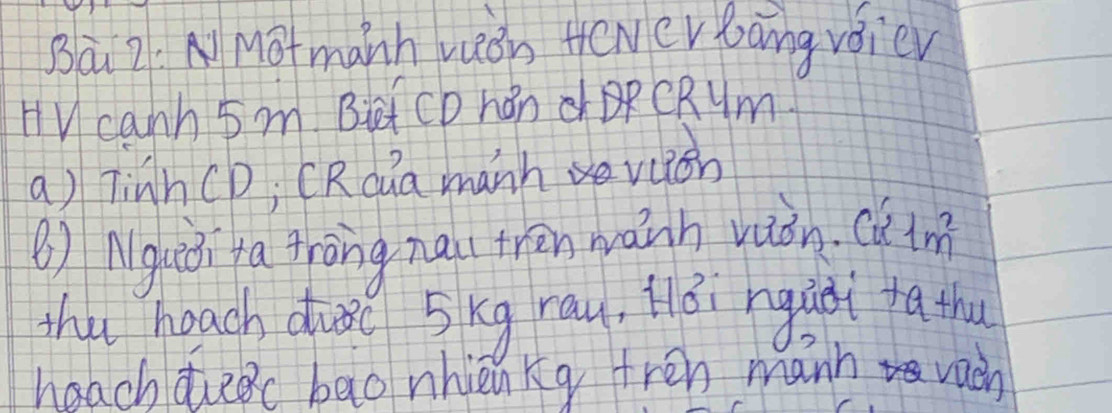 Bài 2: Một mảnh vườn HCN CV bằng với CV
HV cạnh 5m. Biết CD hơn CR 4m.
a) Tính CD; CR của mảnh vườn
b) Người ta trồng rau trên mảnh vườn. Cứ 1m²
thu hoạch được 5kg rau, Hỏi người ta thu
hoạch được bao nhiêu kg trên mảnh vườn